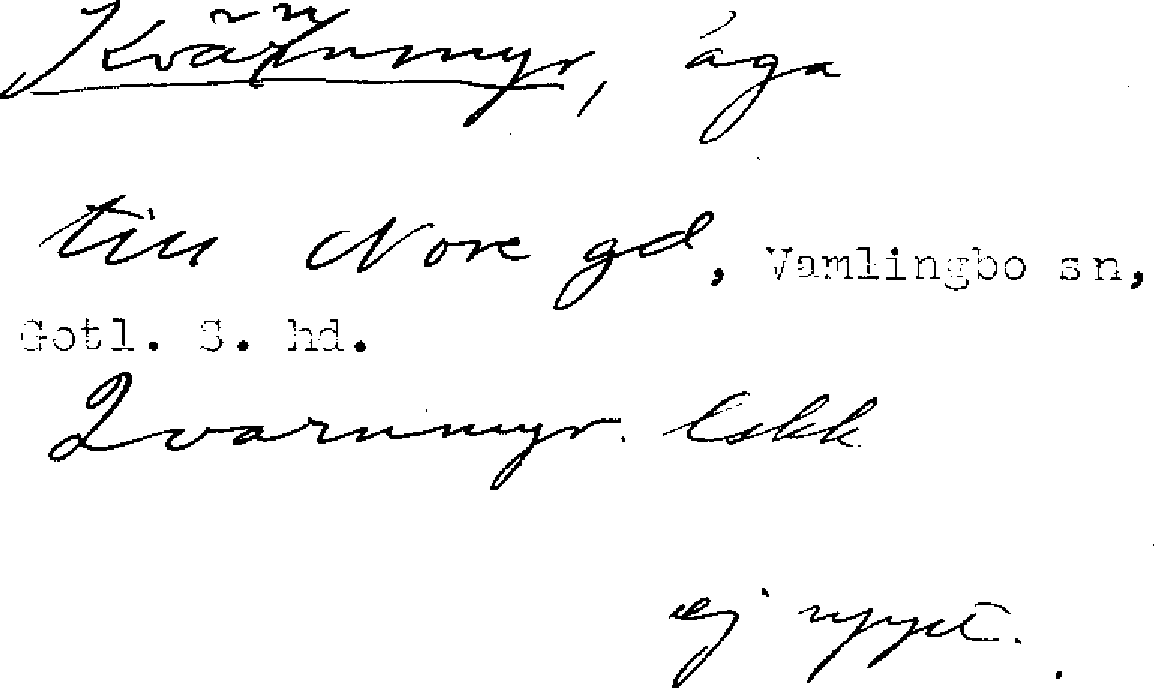 Kvärnmyr, äga
till Nore gd, Vamlingbo sn,
Gotl. S. hd.
Qvarnmyr. lskk
ej uppt.